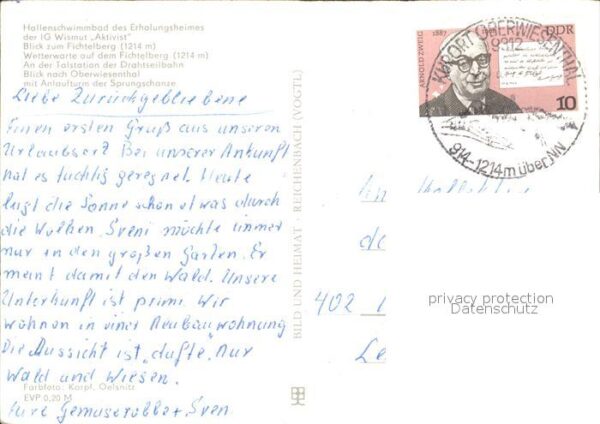 Hallenschwimmbad des Erholungsheimes
der IG Wismut „Aktivist"
Blick zum Fichtelberg (1214 m)
Wetterwarte auf dem Fichtelberg (1214 m)
An der Talstation der Drahtseilbahn
Blick nach Oberwiesenthal
mit Anlaufturm der Sprungschanze
Liebe Zurückgebliebene
Einen ersten Gruß aus unseren
Urlaubsort. Bei unserer Ankunft
hat es tüchtig geregnet. Heute
lugt die Sonne schon etwas durch
die Wolken. Sveni möchte immer
nur in den großen Garten. Er
meint damit den Wald. Unsere
Unterkunft ist prima. Wir
wohnen in einer Neubauwohnung
Die Aussicht ist „dufte". Nur
Wald und Wiesen.
Farbfoto: Karpf, Oelsnitz
EVP 0,20 M
Eure + Sven
BILD UND HEIMAT · REICHENBACH (VOGTL)
ARNOLD ZWEIG
1887
DDR
10
KURORT OBERWIESENTHAL
9312
914-1214m über NN
An
402
privacy protection
Datenschutz